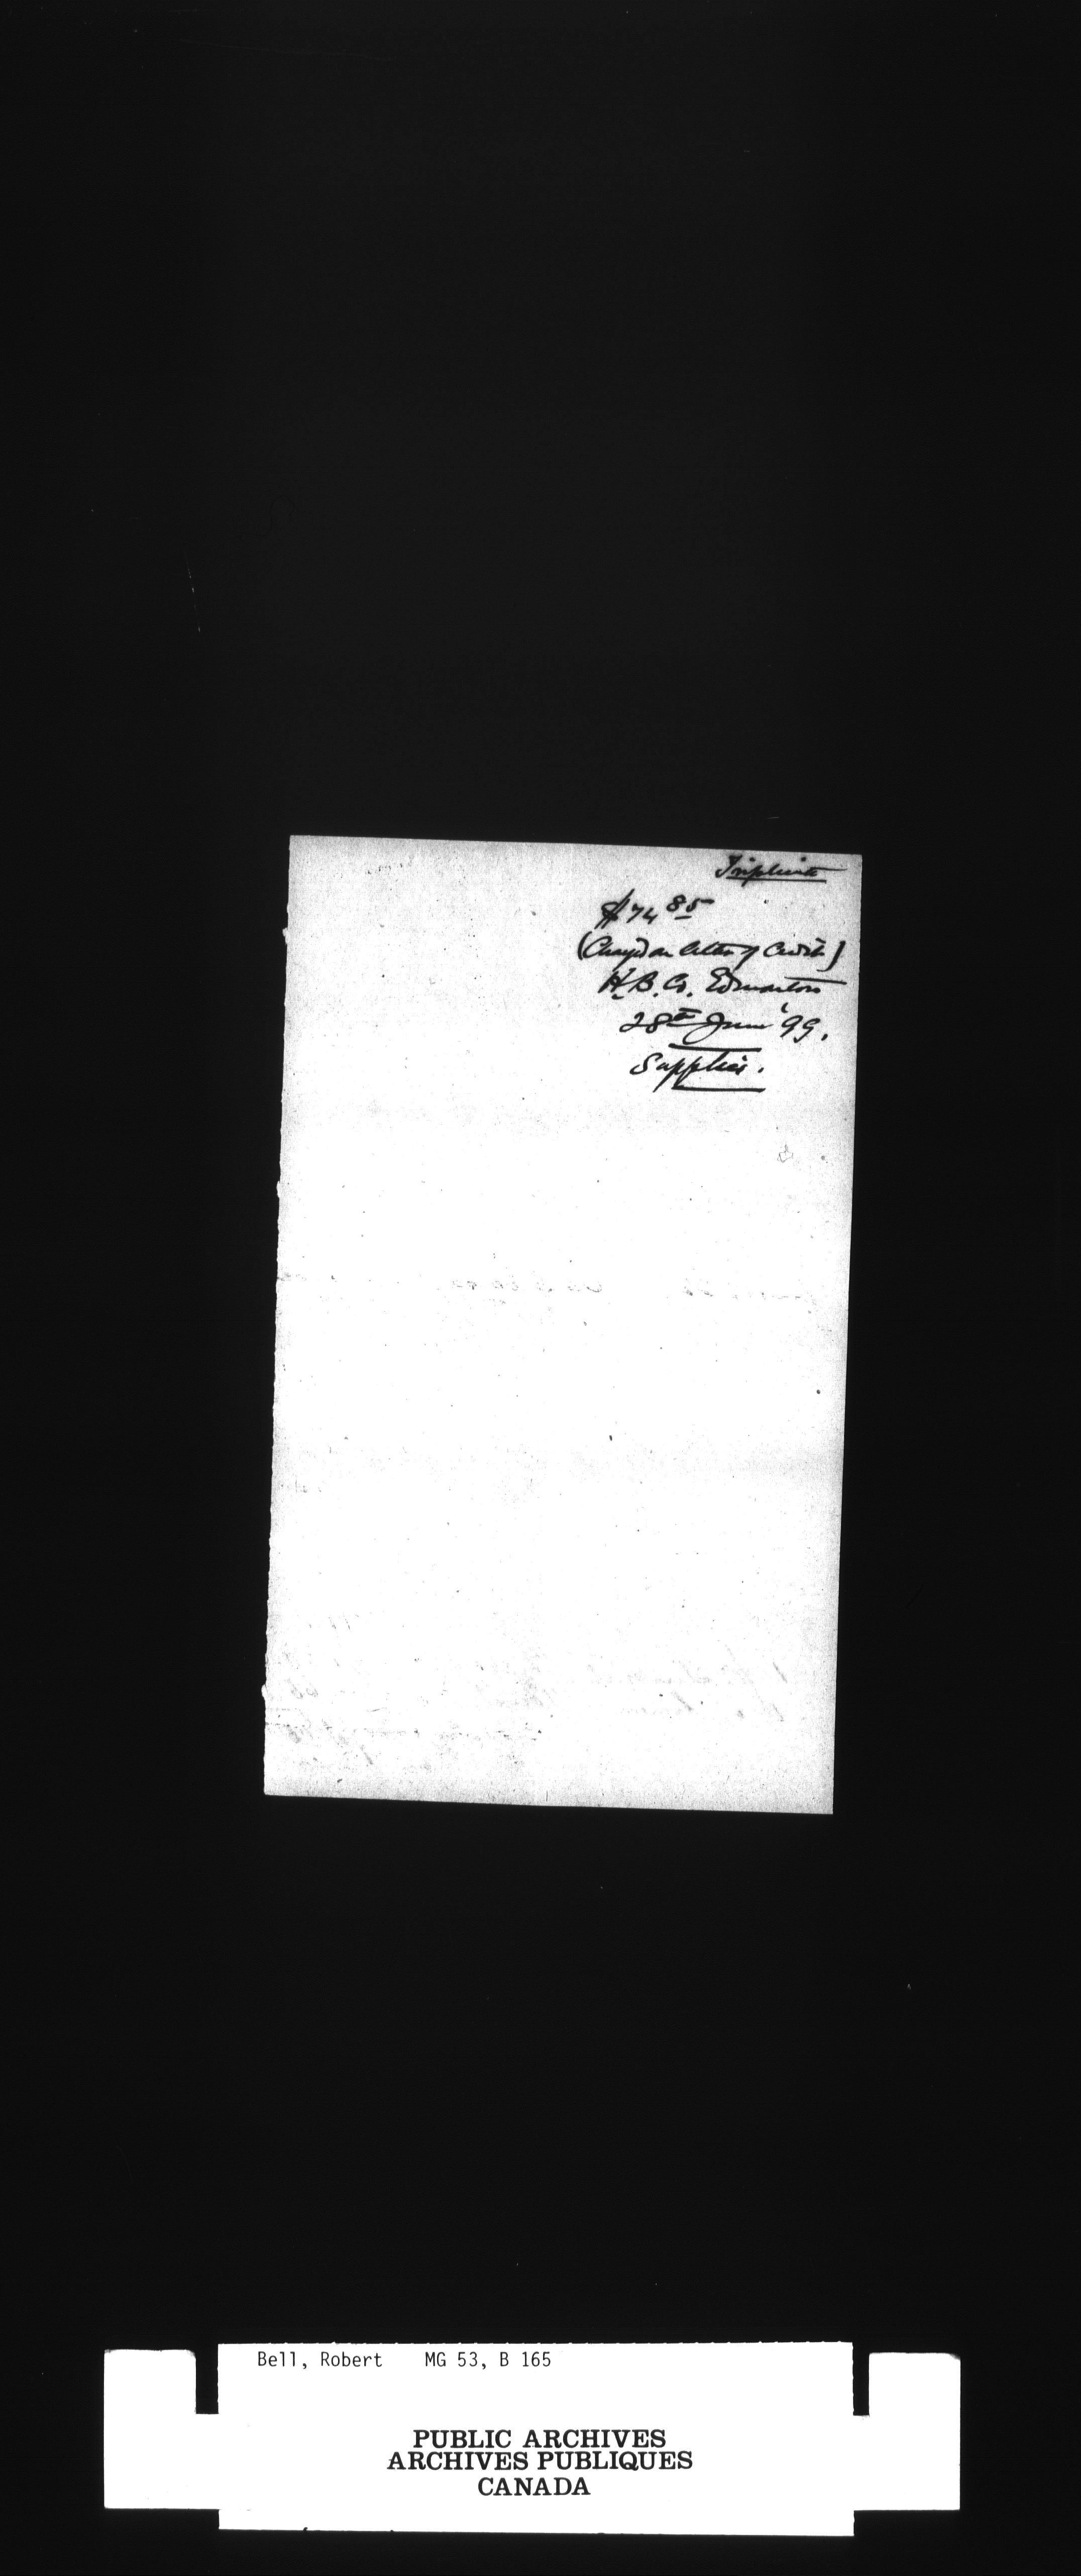 Triplicate
$74 85
(Charged on letter of Credit)
H.B. Co. Edmonton
28th June '99.
Supplies.
Bell, Robert MG 53, B 165
PUBLIC ARCHIVES
ARCHIVES PUBLIQUES
CANADA